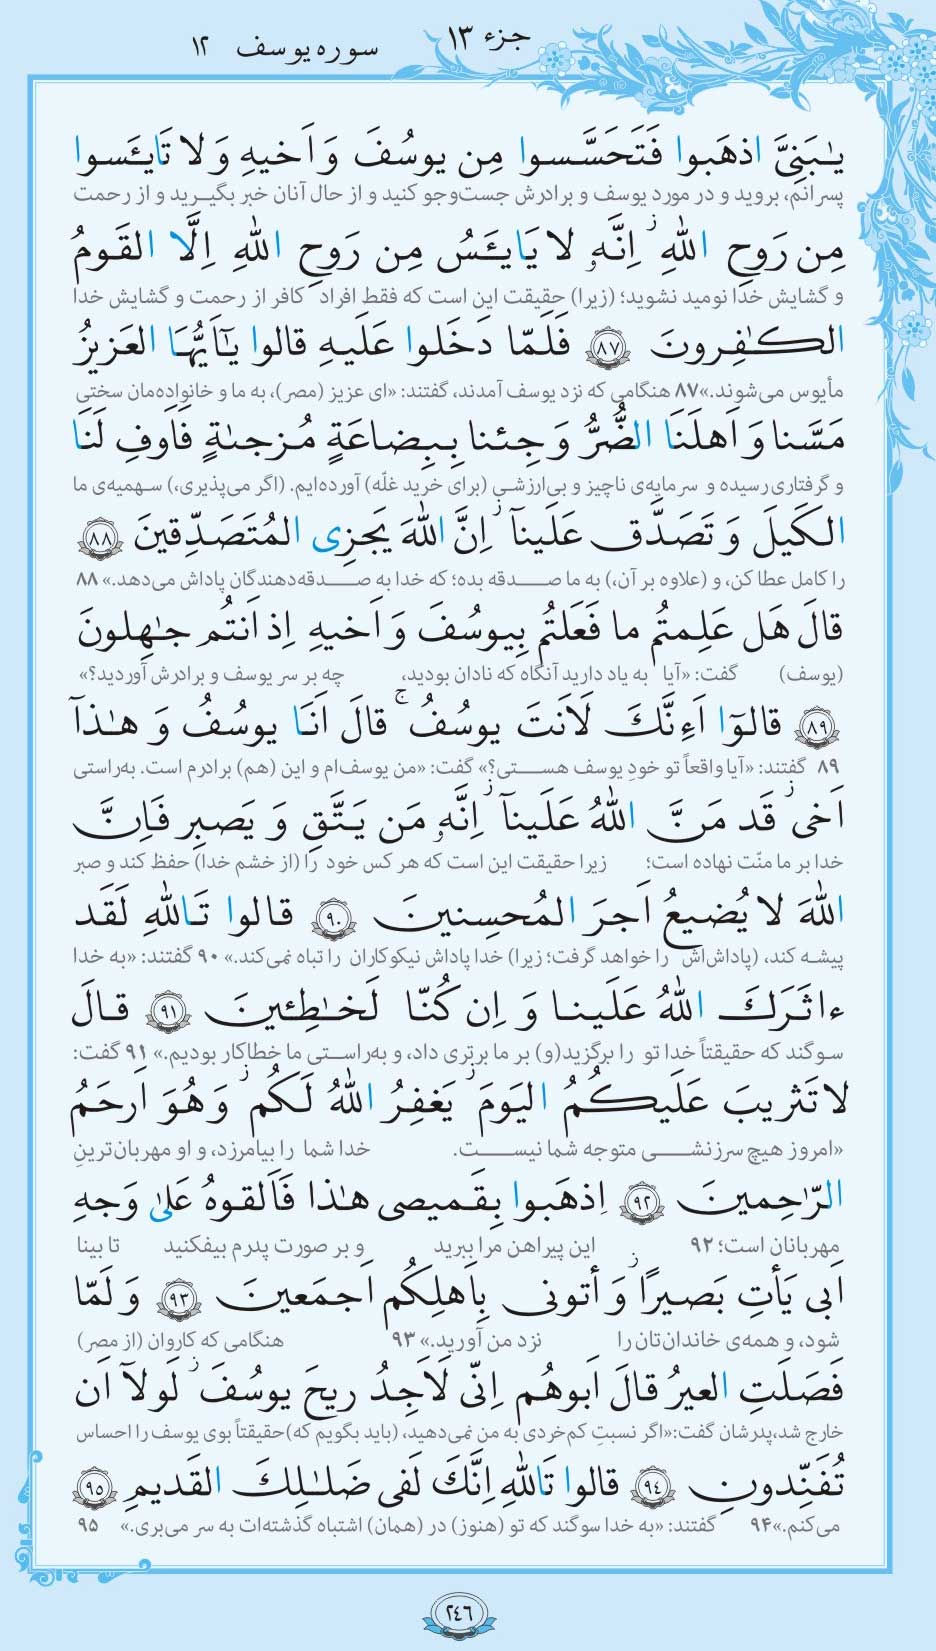 جزء ۱۳
سوره یوسف ۱۲
یٰبَنِیَّ اذهَبوا فَتَحَسَّسوا مِن یوسُفَ وَ اَخیهِ وَ لا تَایئَسوا
پسرانم، بروید و در مورد یوسف و برادرش جست‌وجو کنید و از حال آنان خبر بگیرید و از رحمت
مِن رَوحِ اللهِ ز اِنَّهٗ لا یَایئَسُ مِن رَوحِ اللهِ اِلَّا القَومُ
و گشایش خدا نومید نشوید؛ (زیرا) حقیقت این است که فقط افراد کافر از رحمت و گشایش خدا
الکٰفِرونَ ﴿۸۷﴾ فَلَمّا دَخَلوا عَلَیهِ قالوا یٰٓاَیُّهَا العَزیزُ
مأیوس می‌شوند.» ۸۷ هنگامی که نزد یوسف آمدند، گفتند: «ای عزیز (مصر)، به ما و خانواده‌مان سختی
مَسَّنا وَ اَهلَنَا الضُّرُّ وَ جِئنا بِبِضاعَةٍ مُزجىٰةٍ فَاَوفِ لَنَا
و گرفتاری رسیده و سرمایه‌ی ناچیز و بی‌ارزشی (برای خرید غلّه) آورده‌ایم. (اگر می‌پذیری،) سهمیه‌ی ما
الکَیلَ وَ تَصَدَّق عَلَیناۤ ز اِنَّ اللهَ یَجزِی المُتَصَدِّقینَ ﴿۸۸﴾
را کامل عطا کن، و (علاوه بر آن،) به ما صدقه بده؛ که خدا به صدقه‌دهندگان پاداش می‌دهد.» ۸۸
قالَ هَل عَلِمتُم ما فَعَلتُم بِیوسُفَ وَ اَخیهِ اِذ اَنتُم جٰهِلونَ
(یوسف) گفت: «آیا به یاد دارید آنگاه که نادان بودید، چه بر سر یوسف و برادرش آوردید؟»
﴿۸۹﴾ قالوۤا اَءِنَّكَ لَاَنتَ یوسُفُ ج قالَ اَنَا یوسُفُ وَ هٰذاۤ
۸۹ گفتند: «آیا واقعاً تو خودِ یوسف هستی؟» گفت: «من یوسف‌ام و این (هم) برادرم است. به‌راستی
اَخی ز قَد مَنَّ اللهُ عَلَیناۤ ز اِنَّهٗ مَن یَتَّقِ وَ یَصبِر فَاِنَّ
خدا بر ما منّت نهاده است؛ زیرا حقیقت این است که هر کس خود را (از خشم خدا) حفظ کند و صبر
اللهَ لا یُضیعُ اَجرَ المُحسِنینَ ﴿۹۰﴾ قالوا تَاللهِ لَقَد
پیشه کند، (پاداش‌اش را خواهد گرفت؛ زیرا) خدا پاداش نیکوکاران را تباه نمی‌کند.» ۹۰ گفتند: «به خدا
ءاثَرَكَ اللهُ عَلَینا وَ اِن کُنّا لَخٰطِئینَ ﴿۹۱﴾ قالَ
سوگند که حقیقتاً خدا تو را برگزید(و) بر ما برتری داد، و به‌راستی ما خطاکار بودیم.» ۹۱ گفت:
لا تَثریبَ عَلَیکُمُ الیَومَ ز یَغفِرُ اللهُ لَکُم ز وَ هُوَ اَرحَمُ
«امروز هیچ سرزنشی متوجه شما نیست. خدا شما را بیامرزد، و او مهربان‌ترینِ
الرّٰحِمینَ ﴿۹۲﴾ اِذهَبوا بِقَمیصی هٰذا فَاَلقوهُ عَلىٰ وَجهِ
مهربانان است؛ ۹۲ این پیراهن مرا ببرید و بر صورت پدرم بیفکنید تا بینا
اَبی یَأتِ بَصیرًا ز وَ أتونی بِاَهلِکُم اَجمَعینَ ﴿۹۳﴾ وَ لَمّا
شود، و همه‌ی خاندان‌تان را نزد من آورید.» ۹۳ هنگامی که کاروان (از مصر)
فَصَلَتِ العیرُ قالَ اَبوهُم اِنّی لَاَجِدُ ریحَ یوسُفَ ز لَولاۤ اَن
خارج شد،پدرشان گفت:«اگر نسبتِ کم‌خردی به من نمی‌دهید، (باید بگویم که)حقیقتاً بوی یوسف را احساس
تُفَنِّدونِ ﴿۹۴﴾ قالوا تَاللهِ اِنَّكَ لَفی ضَلٰلِكَ القَدیمِ ﴿۹۵﴾
می‌کنم.» ۹۴ گفتند: «به خدا سوگند که تو (هنوز) در (همان) اشتباه گذشته‌ات به سر می‌بری.» ۹۵
۲۴۶